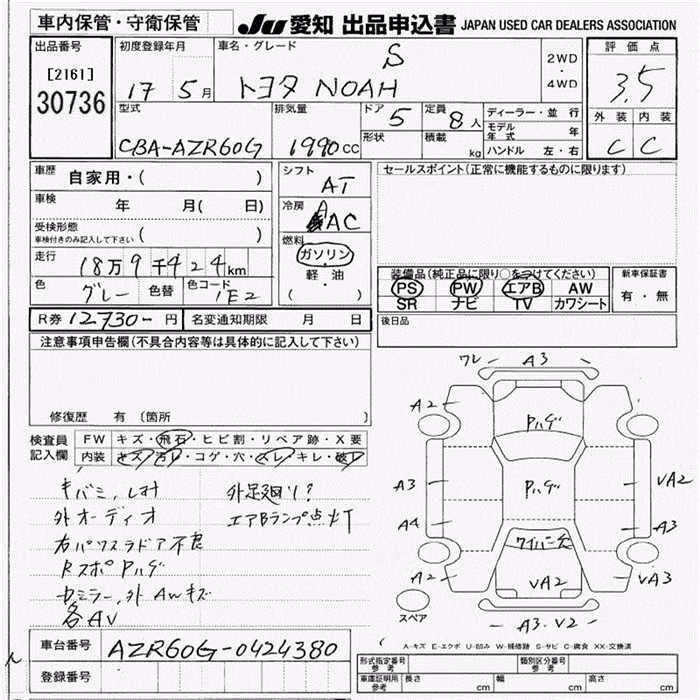 車内保管・守衛保管 JU 愛知 出品申込書 JAPAN USED CAR DEALERS ASSOCIATION
出品番号 初度登録年月 車名・グレード 評価点
[2161] S 2WD・4WD
30736 17 5月 トヨタ NOAH 3.5
型式 排気量 ドア 5 定員 8人 ディーラー・並行 外装 内装
CBA-AZR60G 1990cc 形状 積載 kg モデル年式 年 C C
ハンドル 左・右
車歴 自家用・( ) シフト AT セールスポイント(正常に機能するものに限ります)
車検 年 月( 日) 冷房 AC
受検形態
車検付きのみ記入して下さい( ) 燃料
走行 18万9千424km ガソリン
軽油
( )
色 グレー 色替 色コード 1E2
装備品(純正品に限り○を付けてください) 新車保証書
PS PW エアB AW 有・無
SR ナビ TV カワシート
R券 12730-円 名変通知期限 月 日 後日品
注意事項申告欄(不具合内容等は具体的に記入して下さい)
修復歴 有 〔箇所 〕
検査員記入欄 FW キズ・飛石・ヒビ割・リペア跡・X要
内装 キズ・汚レ・コゲ・穴・スレ・キレ・破レ
キバミ,しみ 外足廻り?
外オーディオ エアBランプ点灯
右パワスラドア不良
RスポPハゲ
ミラー,外AWキズ
各AV
ワレ A3
A2 Pハゲ
A3 Pハゲ VA2
A4 A3
A2 ワイパーキズ VA2 VA3
スペア A3.V2
A-キズ E-エクボ U-凹み W-補修跡 S-サビ C-腐食 XX-交換済
車台番号 AZR60G-0424380
登録番号
形式指定番号 参考 類別区分番号 参考
車庫証明用 参考 長さ cm 幅 cm 高さ cm